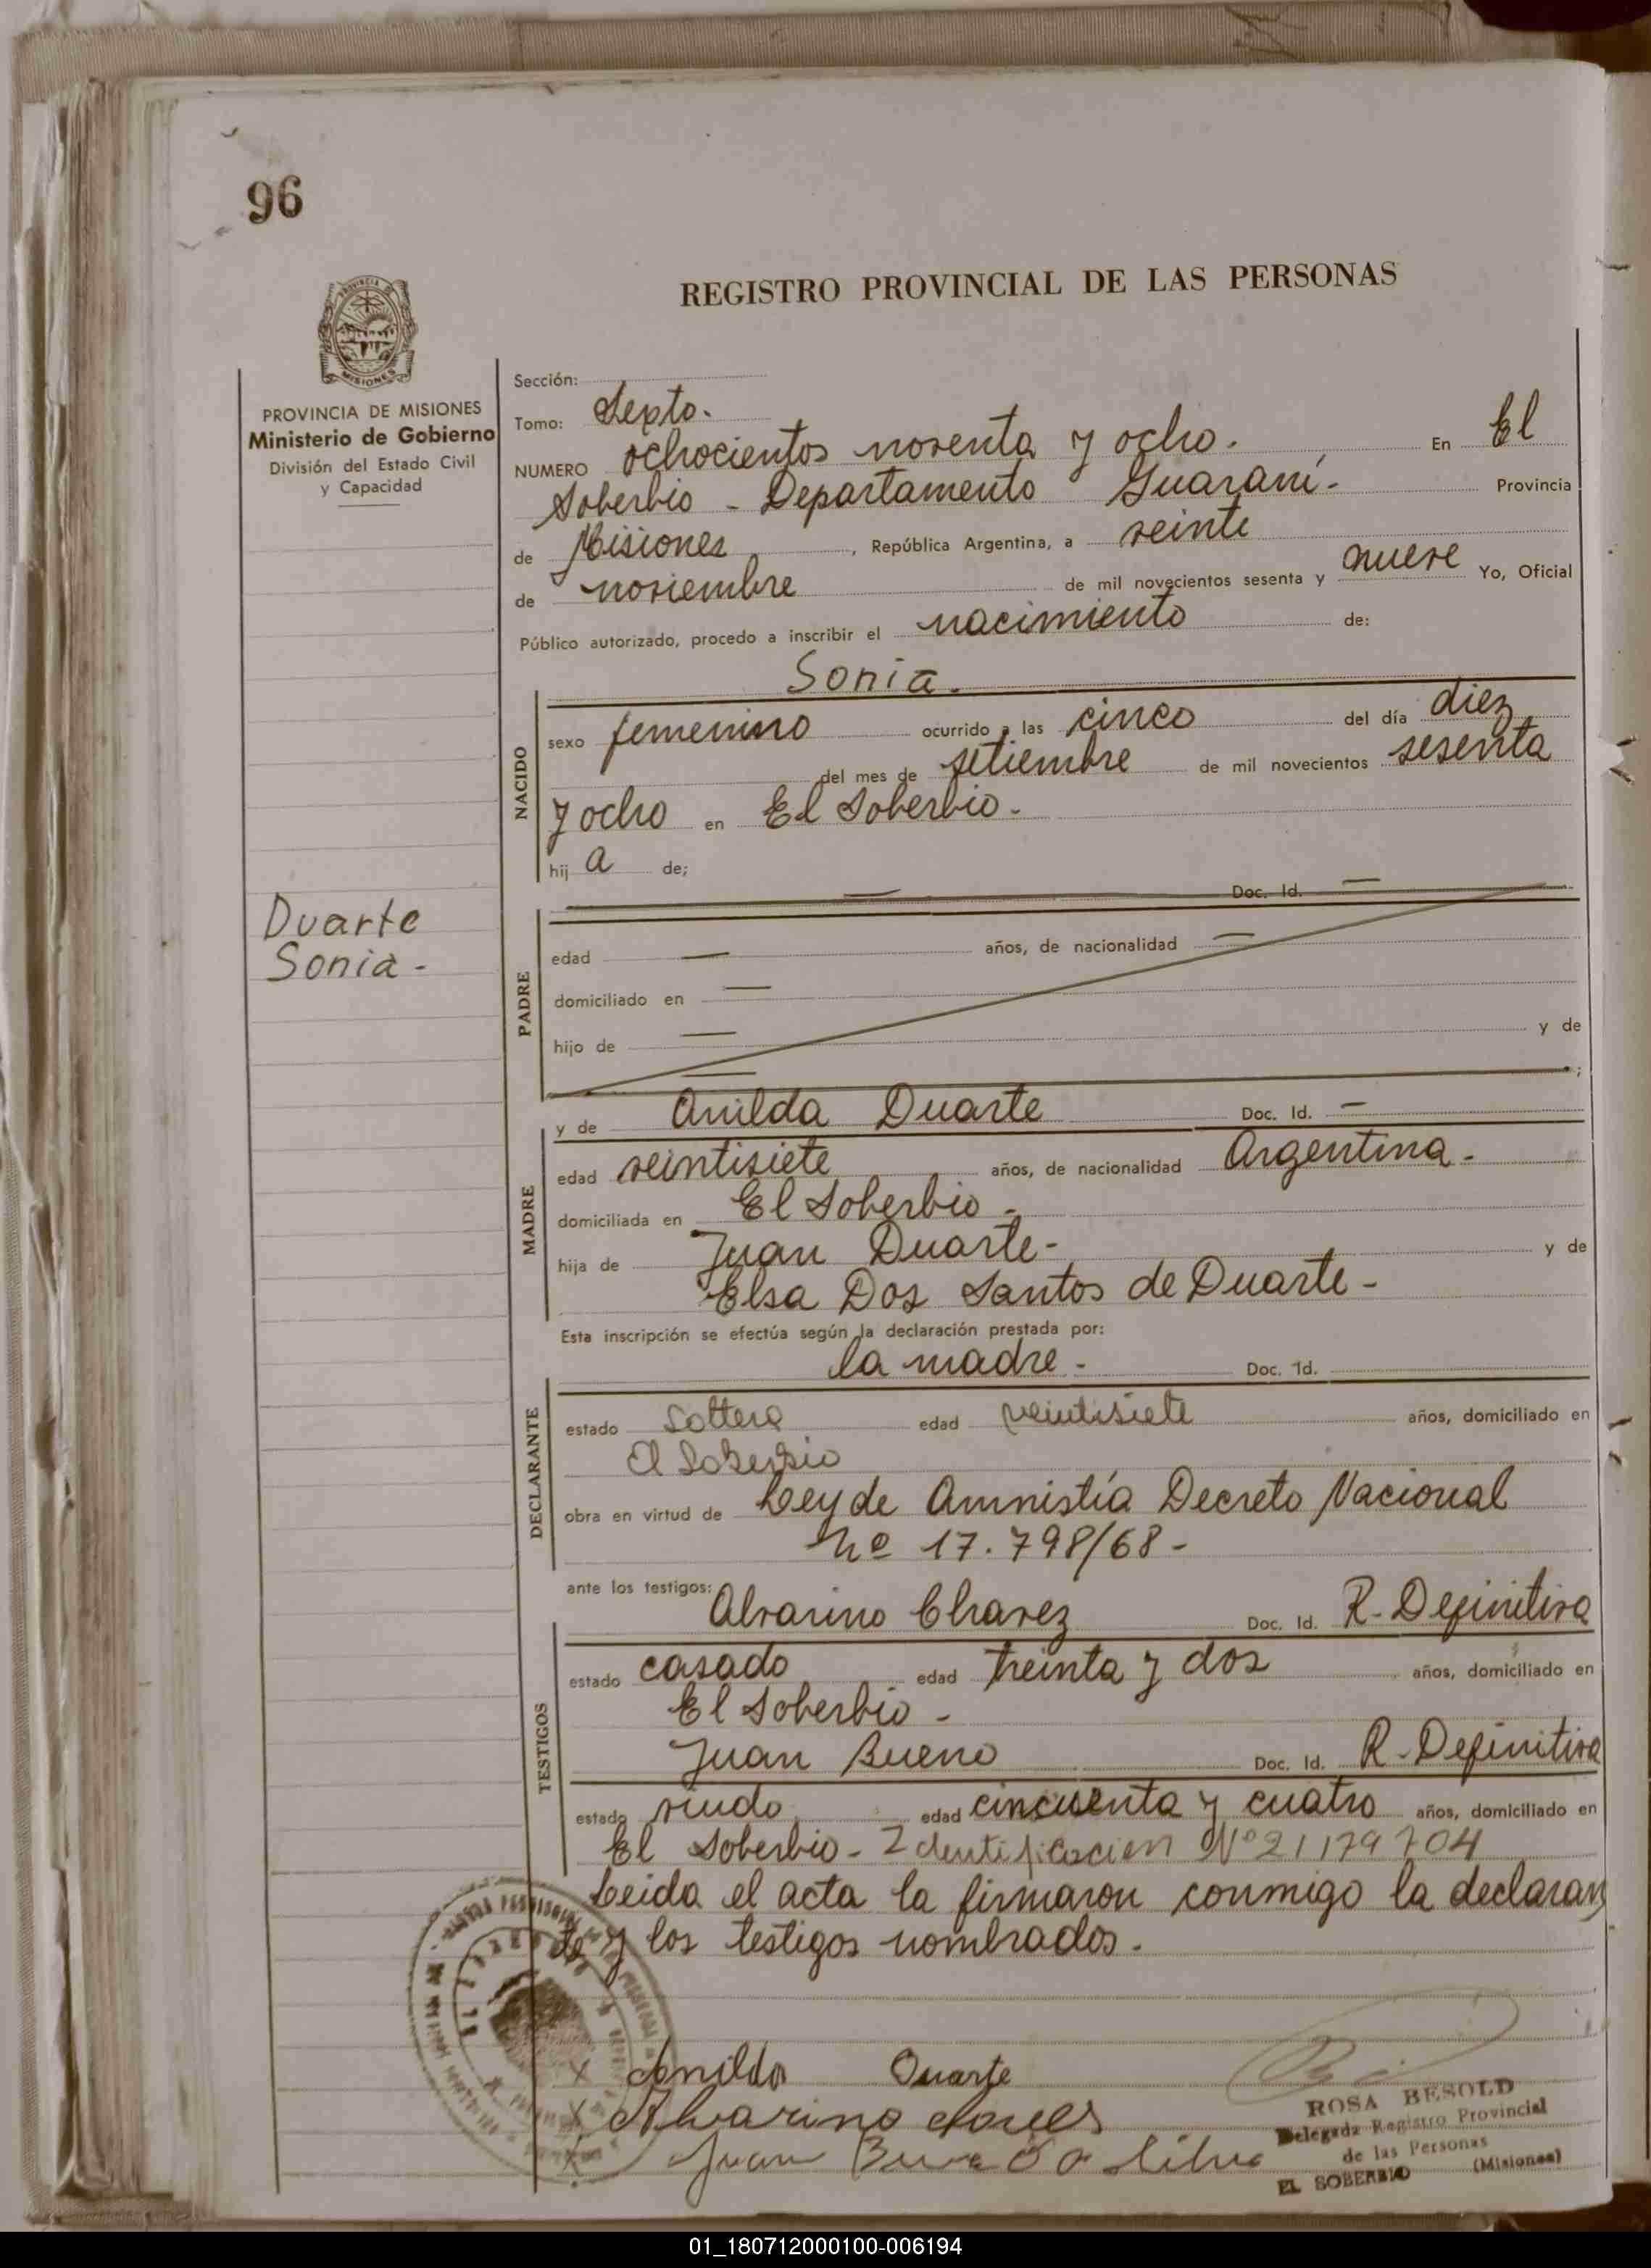 96
REGISTRO PROVINCIAL DE LAS PERSONAS
PROVINCIA DE MISIONES
Ministerio de Gobierno
División del Estado Civil
y Capacidad
Sección:
Tomo: Sexto.
NUMERO ochocientos noventa y ocho. En El
Soberbio - Departamento Guaraní - Provincia
de Misiones, República Argentina, a veinte
de noviembre de mil novecientos sesenta y nueve Yo, Oficial
Público autorizado, procedo a inscribir el nacimiento de:
Sonia.
NACIDO
sexo femenino ocurrido a las cinco del día diez
del mes de setiembre de mil novecientos sesenta
y ocho en El Soberbio -
hij a de;
Duarte
Sonia -
PADRE
— Doc. Id. —
edad — años, de nacionalidad —
domiciliado en —
hijo de — y de
— ;
MADRE
y de Anilda Duarte Doc. Id. —
edad veintisiete años, de nacionalidad Argentina -
domiciliada en El Soberbio -
hija de Juan Duarte - y de
Elsa Dos Santos de Duarte -
Esta inscripción se efectúa según la declaración prestada por:
la madre - Doc. Id.
DECLARANTE
estado soltera edad veintisiete años, domiciliado en
El Soberbio
obra en virtud de Ley de Amnistía Decreto Nacional
Nº 17.798/68 -
ante los testigos:
TESTIGOS
Alvarino Chavez Doc. Id. R. Definitiva
estado casado edad treinta y dos años, domiciliado en
El Soberbio -
Juan Bueno Doc. Id. R. Definitiva
estado viudo edad cincuenta y cuatro años, domiciliado en
El Soberbio - Identificacion Nº 21179704
Leida el acta la firmaron conmigo la declaran
te y los testigos nombrados.
x Anilda Duarte
x Alvarino
x Juan
ROSA BESOLD
Delegada Registro Provincial
de las Personas
EL SOBERBIO (Misiones)
01_180712000100-006194